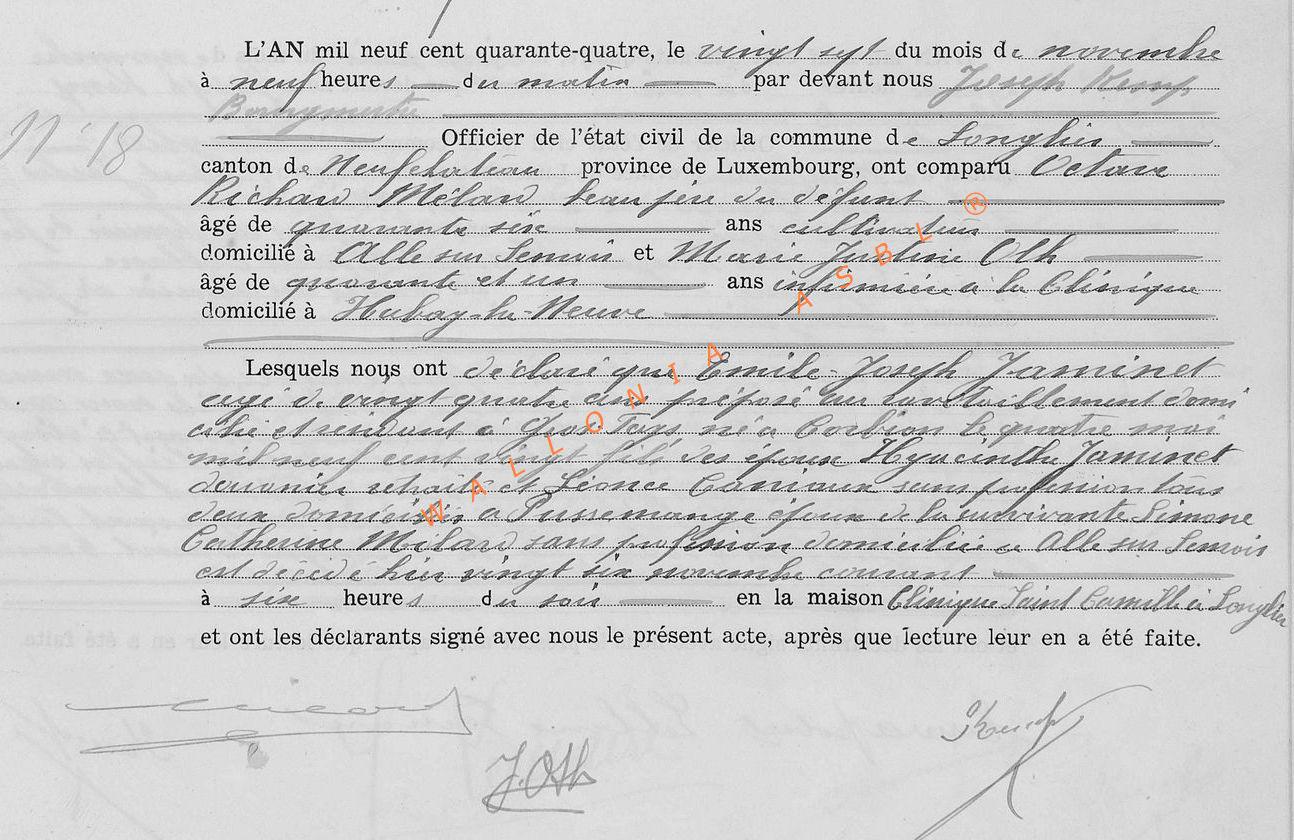 L'AN mil neuf cent quarante-quatre, le vingt sept du mois de novembre
à neuf heures du matin par devant nous Joseph
Bourgmestre
N° 18
Officier de l'état civil de la commune de Longlier
canton de Neufchâteau province de Luxembourg, ont comparu Octave
Richard Mélard beau père du défunt
âgé de quarante six ans cultivateur
domicilié à Alle sur Semois et Marie Justine Oth
âgé de quarante et un ans infirmière à la Clinique
domicilié à Habay-la-Neuve
Lesquels nous ont déclaré que Emile-Joseph Jaminet
âgé de vingt quatre ans préposé au ravitaillement domi
cilié et résidant à Gros Fays né à Corbion le quatre mai
mil neuf cent vingt fils des époux Hyacinthe Jaminet
douanier retraité et Léonce sans profession tous
deux domiciliés à Pussemange époux de la survivante Simone
Catherine Mélard sans profession domiciliée à Alle sur Semois
est décédé hier vingt six novembre courant
à six heures du soir en la maison Clinique Saint Camille à Longlier
et ont les déclarants signé avec nous le présent acte, après que lecture leur en a été faite.
J. Oth
WALLONIA ASBL ®